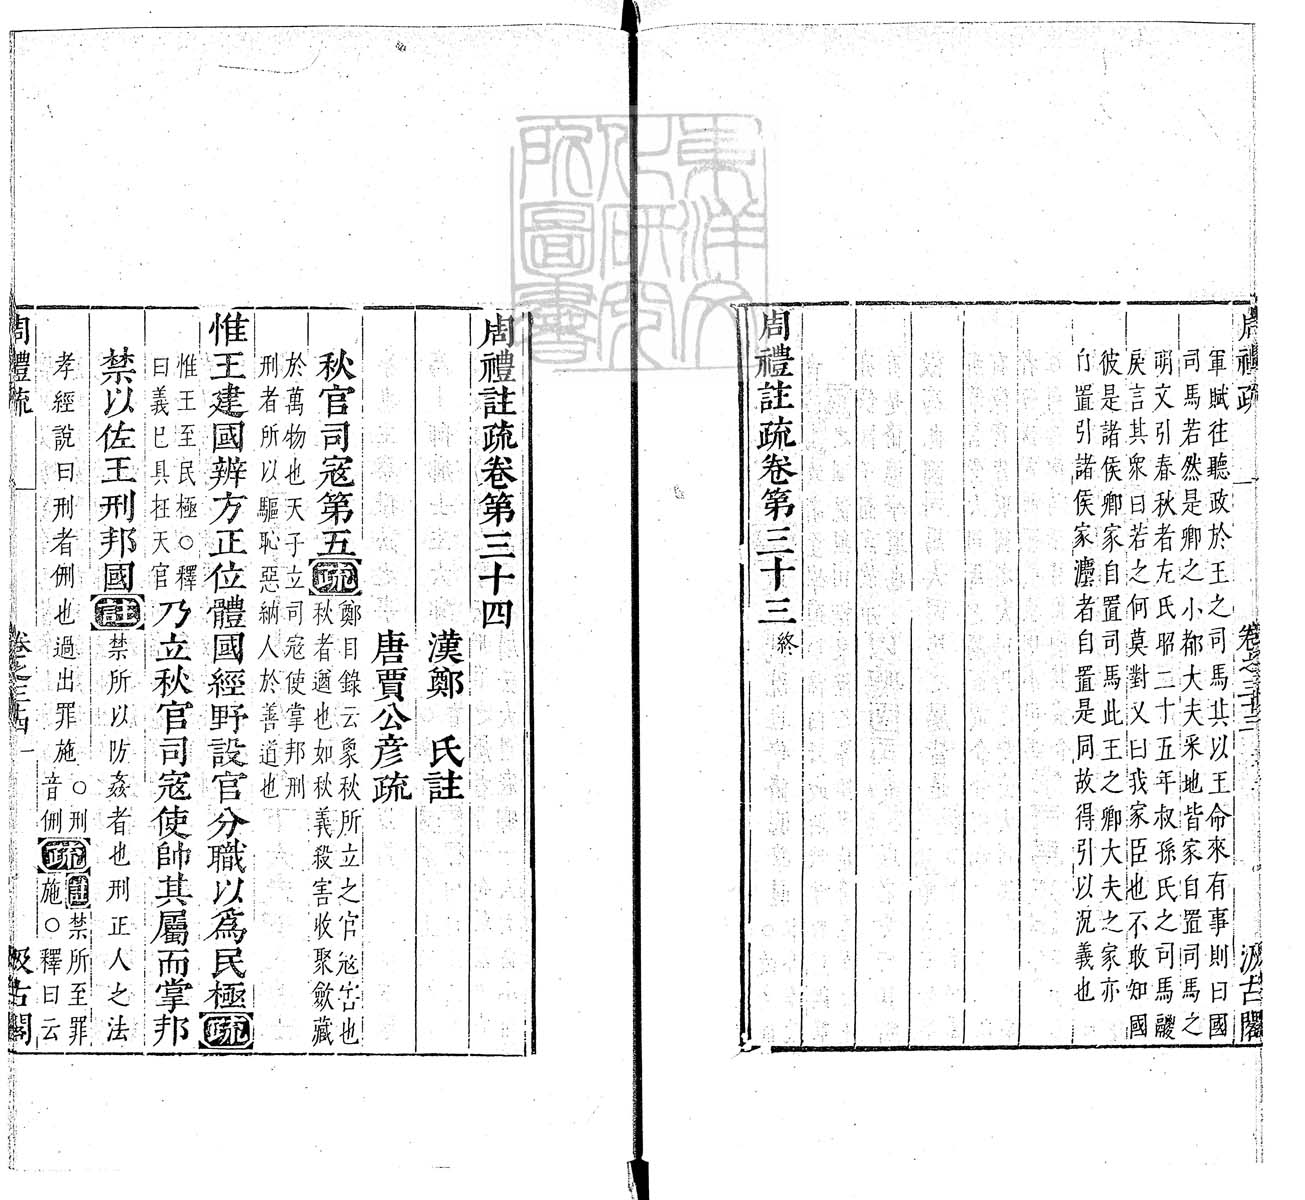 周禮疏 卷之三十三 汲古閣
軍賦往聽政於王之司馬其以王命來有事則曰國
司馬若然是卿之小都大夫采地皆家自置司馬之
明文引春秋者左氏昭二十五年叔孫氏之司馬鬷
戾言其衆曰若之何莫對又曰我家臣也不敢知國
彼是諸侯卿家自置司馬此王之卿大夫之家亦
自置引諸侯家灋者自置是同故得引以況義也
周禮註疏卷第三十三 終
東洋文
化研究
所圖書
周禮註疏卷第三十四
漢鄭 氏註
唐賈公彥疏
秋官司寇第五
疏
鄭目錄云象秋所立之官寇害也
秋者遒也如秋義殺害收聚斂藏
於萬物也天子立司寇使掌邦刑
刑者所以驅恥惡納人於善道也
惟王建國辨方正位體國經野設官分職以爲民極
疏
惟王至民極○釋
曰義已具在天官
乃立秋官司寇使帥其屬而掌邦
禁以佐王刑邦國
註
禁所以防姦者也刑正人之法
孝經說曰刑者侀也過出罪施
○刑
音侀
疏
註禁所至罪
施○釋曰云
周禮疏 卷之三十四 一 汲古閣